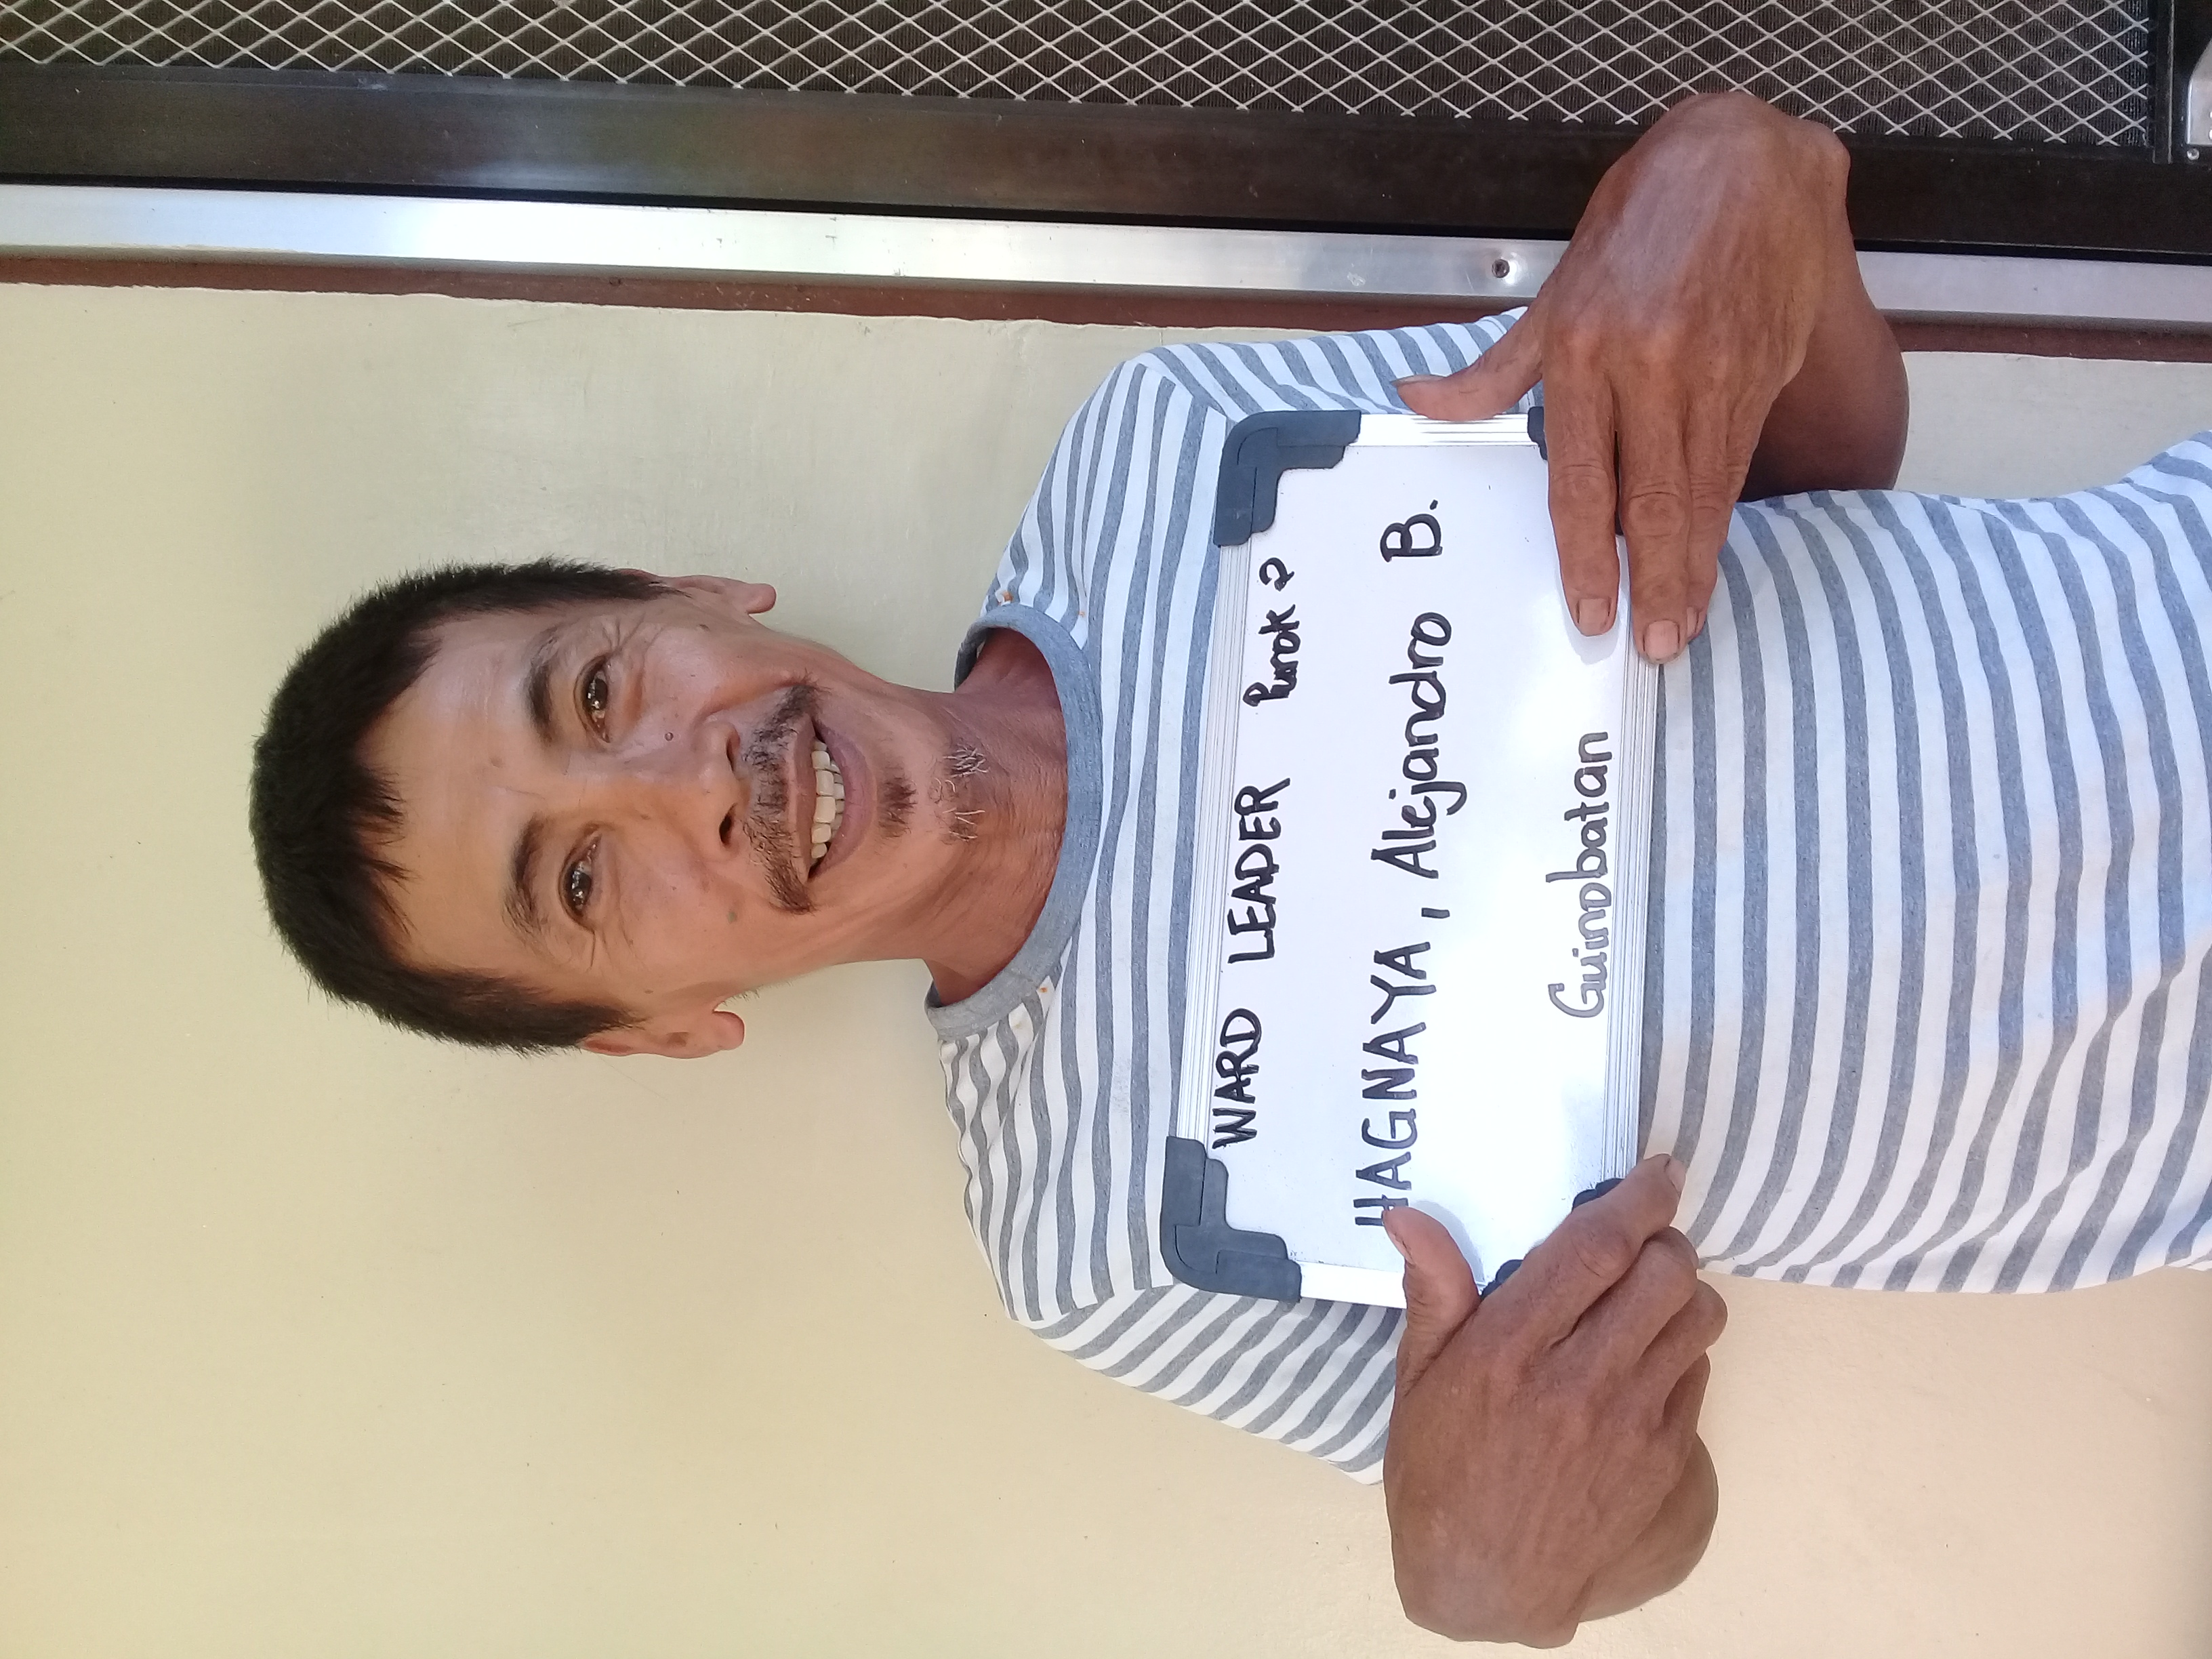 WARD LEADER Purok 2
HAGNAYA, Alejandro B.
Guinobatan